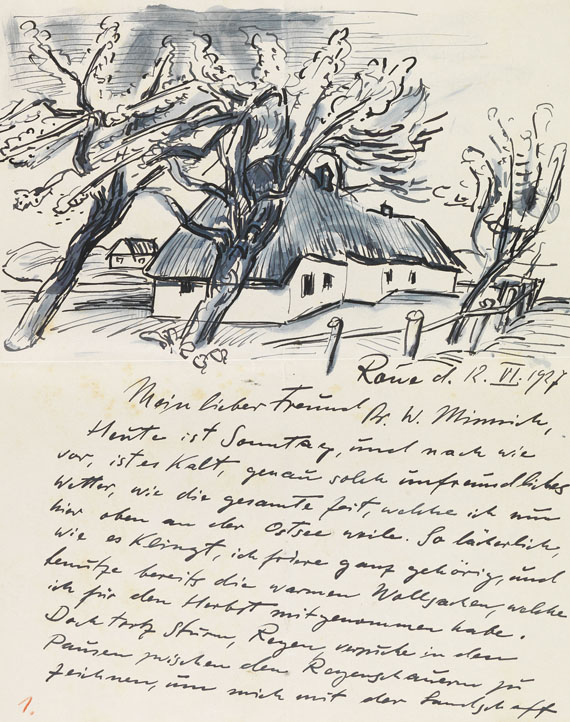 Rowe d. 12. VI. 1927
Mein lieber Freund Br. W. Minnich,
Heute ist Sonntag, und nach wie
vor, ist es Kalt, genau solch unfreundliches
Wetter, wie die gesamte Zeit, welche ich nun
hier oben an der Ostsee weile. So lächerlich,
wie es Klingt, ich friere ganz gehörig, und
benutze bereits die warmen Wollsachen, welche
ich für den Herbst mitgenommen habe.
Doch trotz Sturm, Regen, versuche in den
Pausen zwischen den Regenschauern zu
zeichnen, um mich mit der Landschaft
1.